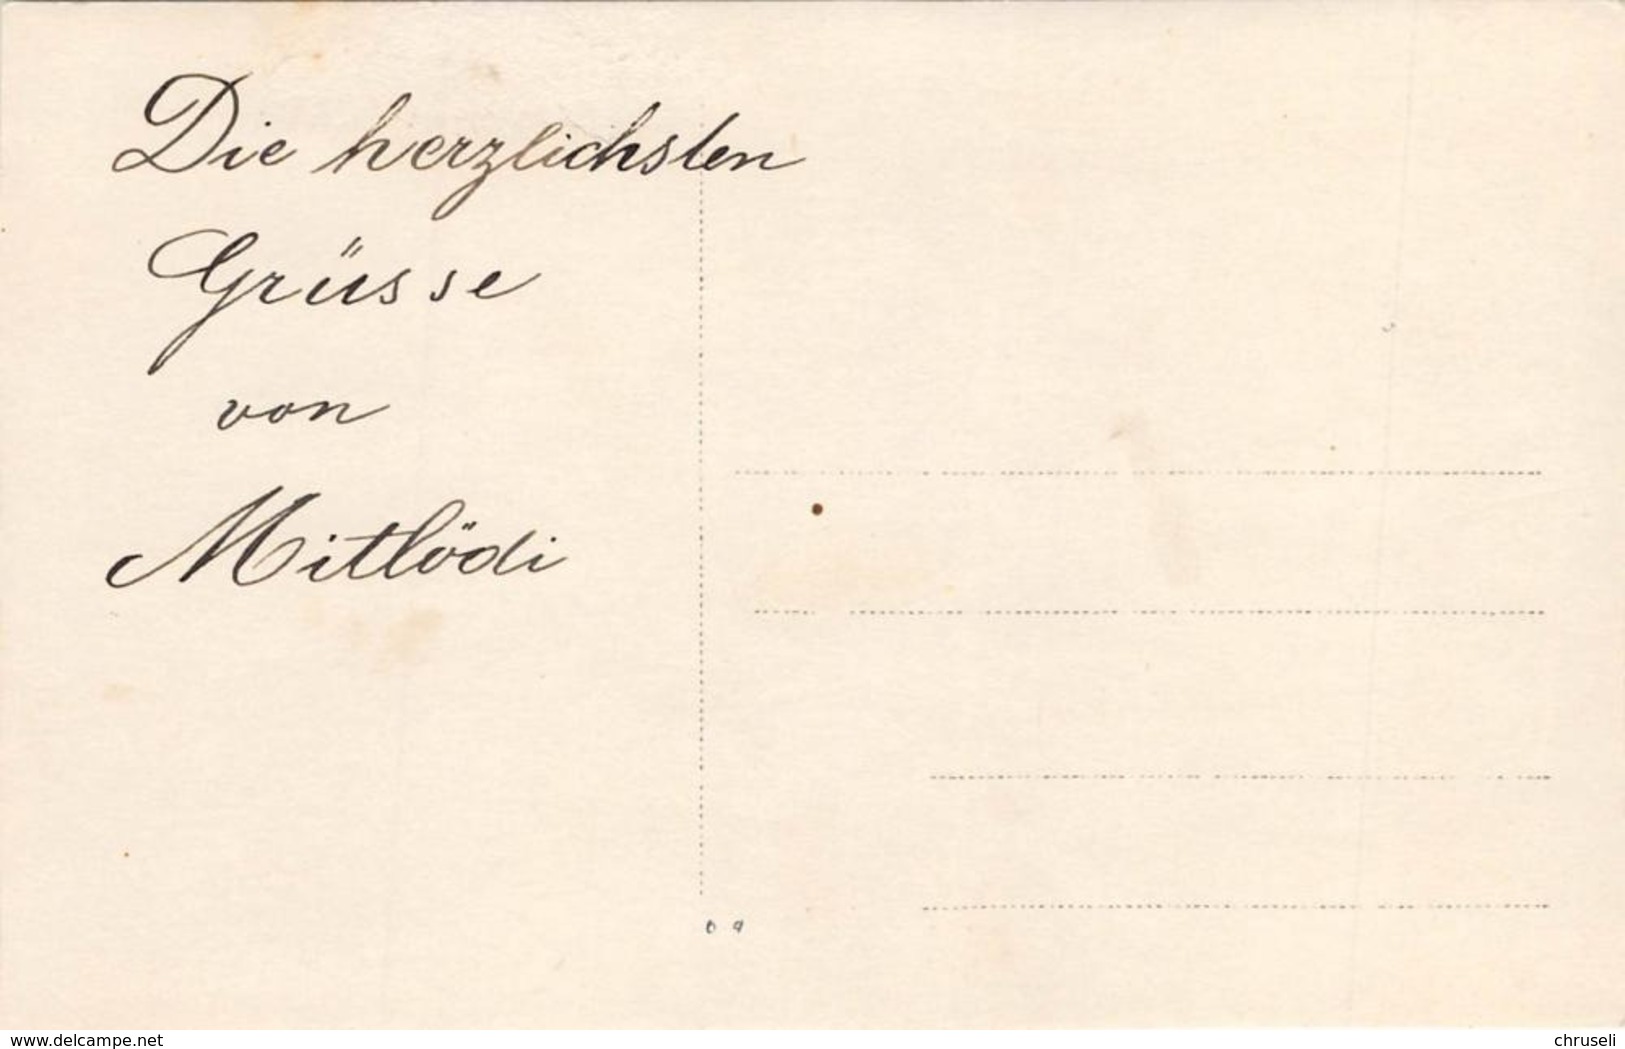 Die herzlichsten
Grüsse
von
Mitlödi
www.delcampe.net
chruseli